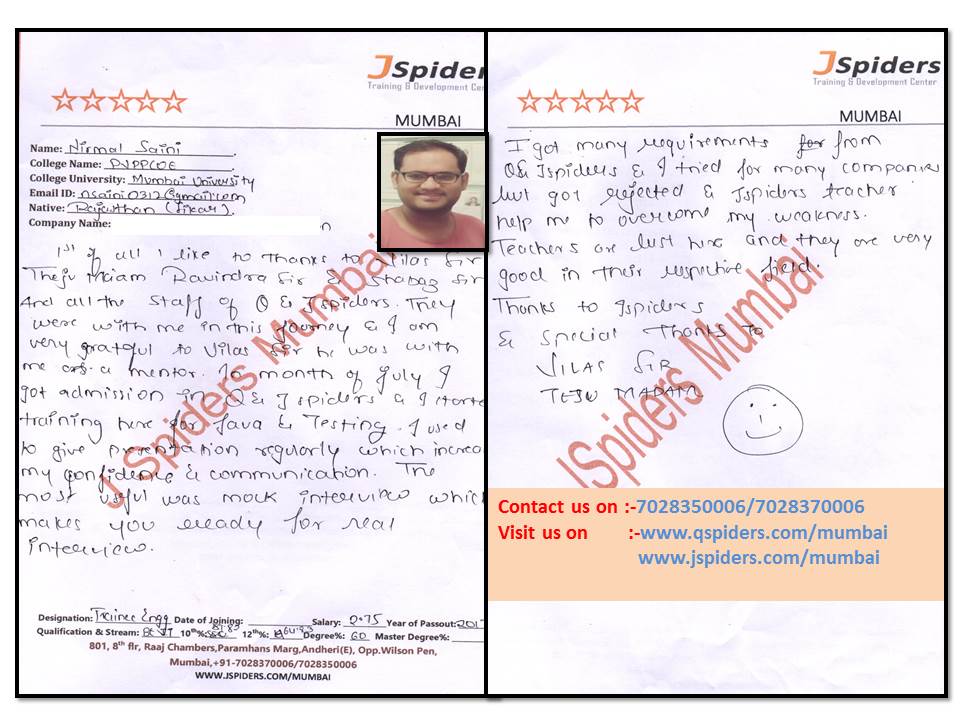 JSpiders
Training & Development Center
MUMBAI
Name: Nirmal Saini
College Name: PVPPCOE
College University: Mumbai University
Email ID: nsaini0312@gmail.com
Native: Rajasthan (Sikar).
Company Name:
1st of all I like to thanks to Vilas Sir
Theju Maam Ravindra Sir & Shabaz Sir
And all the staff of Q & Jspiders. They
were with me in this journey & I am
very grateful to Vilas Sir he was with
me as a mentor. In month of July I
got admission in Q & J spiders & I starte
training here for Java & Testing. I used
to give presentation regularly which increa
my confidence & communication. The
most useful was mock interview which
makes you ready for real
interview.
JSpiders Mumbai
Designation: Trainee Engg Date of Joining: Salary: 2.75 Year of Passout: 2017
Qualification & Stream: BE IT 10th%: 81.83 12th%: 64.83 Degree%: 60 Master Degree%:
801, 8th flr, Raaj Chambers,Paramhans Marg,Andheri(E), Opp.Wilson Pen,
Mumbai,+91-7028370006/7028350006
WWW.JSPIDERS.COM/MUMBAI
JSpiders
Training & Development Center
MUMBAI
I got many requirements for from
Q & Jspiders & I tried for many companies
but got rejected & Jspiders teacher
help me to overcome my weakness.
Teachers are Just here and they are very
good in their respective field.
Thanks to Jspiders
& Special Thanks to
VILAS SIR
TEJU MADAM
JSpiders Mumbai
Contact us on :-7028350006/7028370006
Visit us on :-www.qspiders.com/mumbai
www.jspiders.com/mumbai